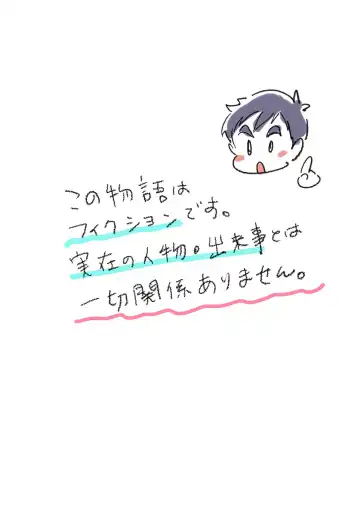 この物語は
フィクションです。
実在の人物。出来事とは
一切関係ありません。